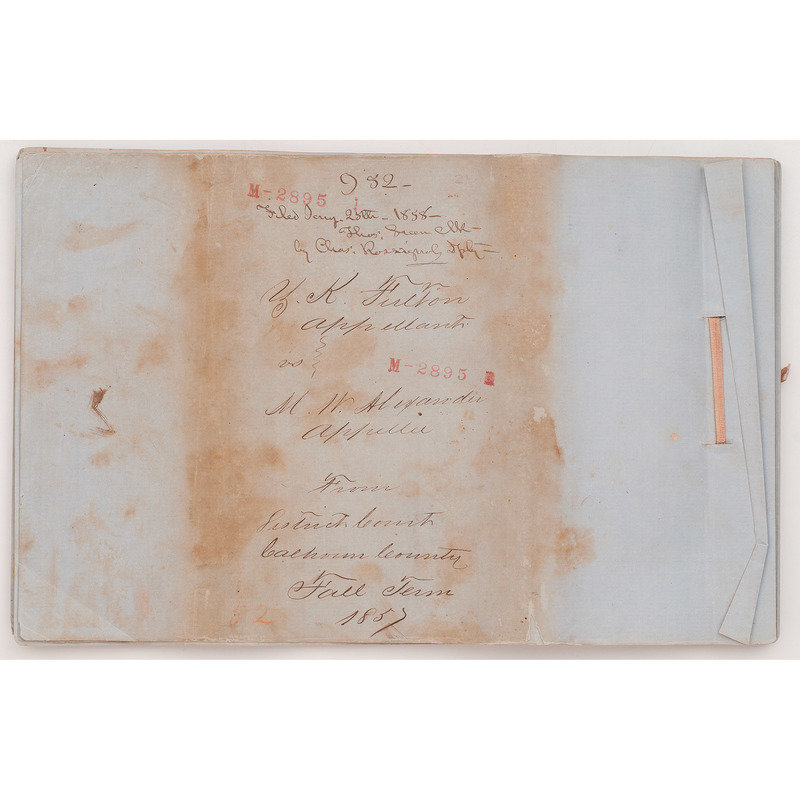 952-
M-2895
Filed Jany. 25th - 1858-
Thos. Green Clk-
by Chas. Rossignol, Dpty-
K. Fulton
Appellant
vs
M-2895
M. W. Alexander
Appellee
From
District Court
Calhoun County
Fall Term
1857
52